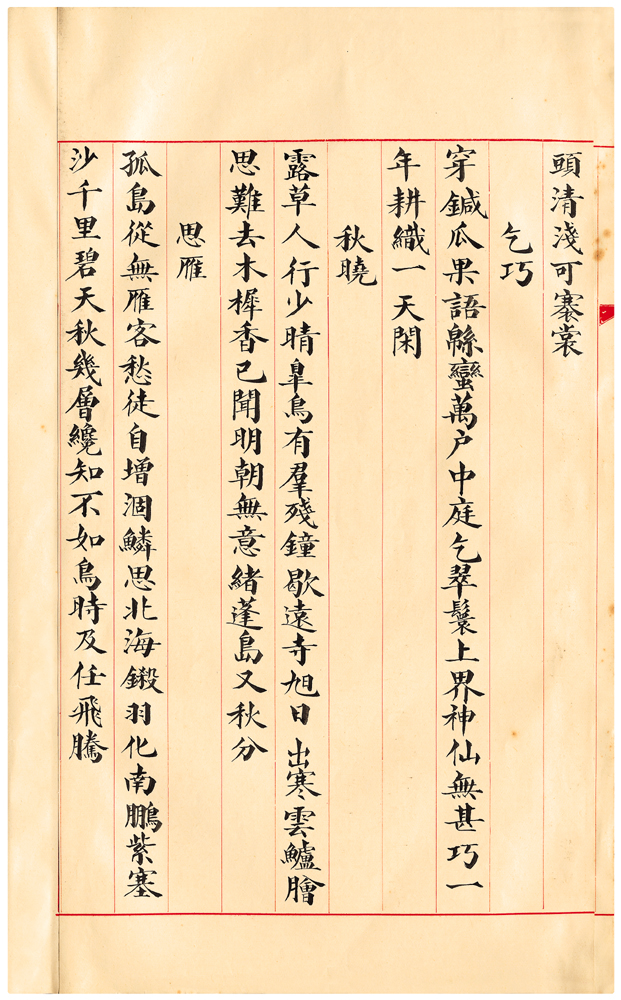 頭清淺可褰裳
乞巧
穿鍼瓜果語緜蠻萬户中庭乞翠鬟上界神仙無甚巧一
年耕織一天閑
秋曉
露草人行少晴皐鳥有羣殘鐘歇遠寺旭日出寒雲鱸膾
思難去木樨香已聞明朝無意緒蓬島又秋分
思雁
孤島從無雁客愁徒自增涸鱗思北海鎩羽化南鵬紫塞
沙千里碧天秋幾層纔知不如鳥時及任飛騰